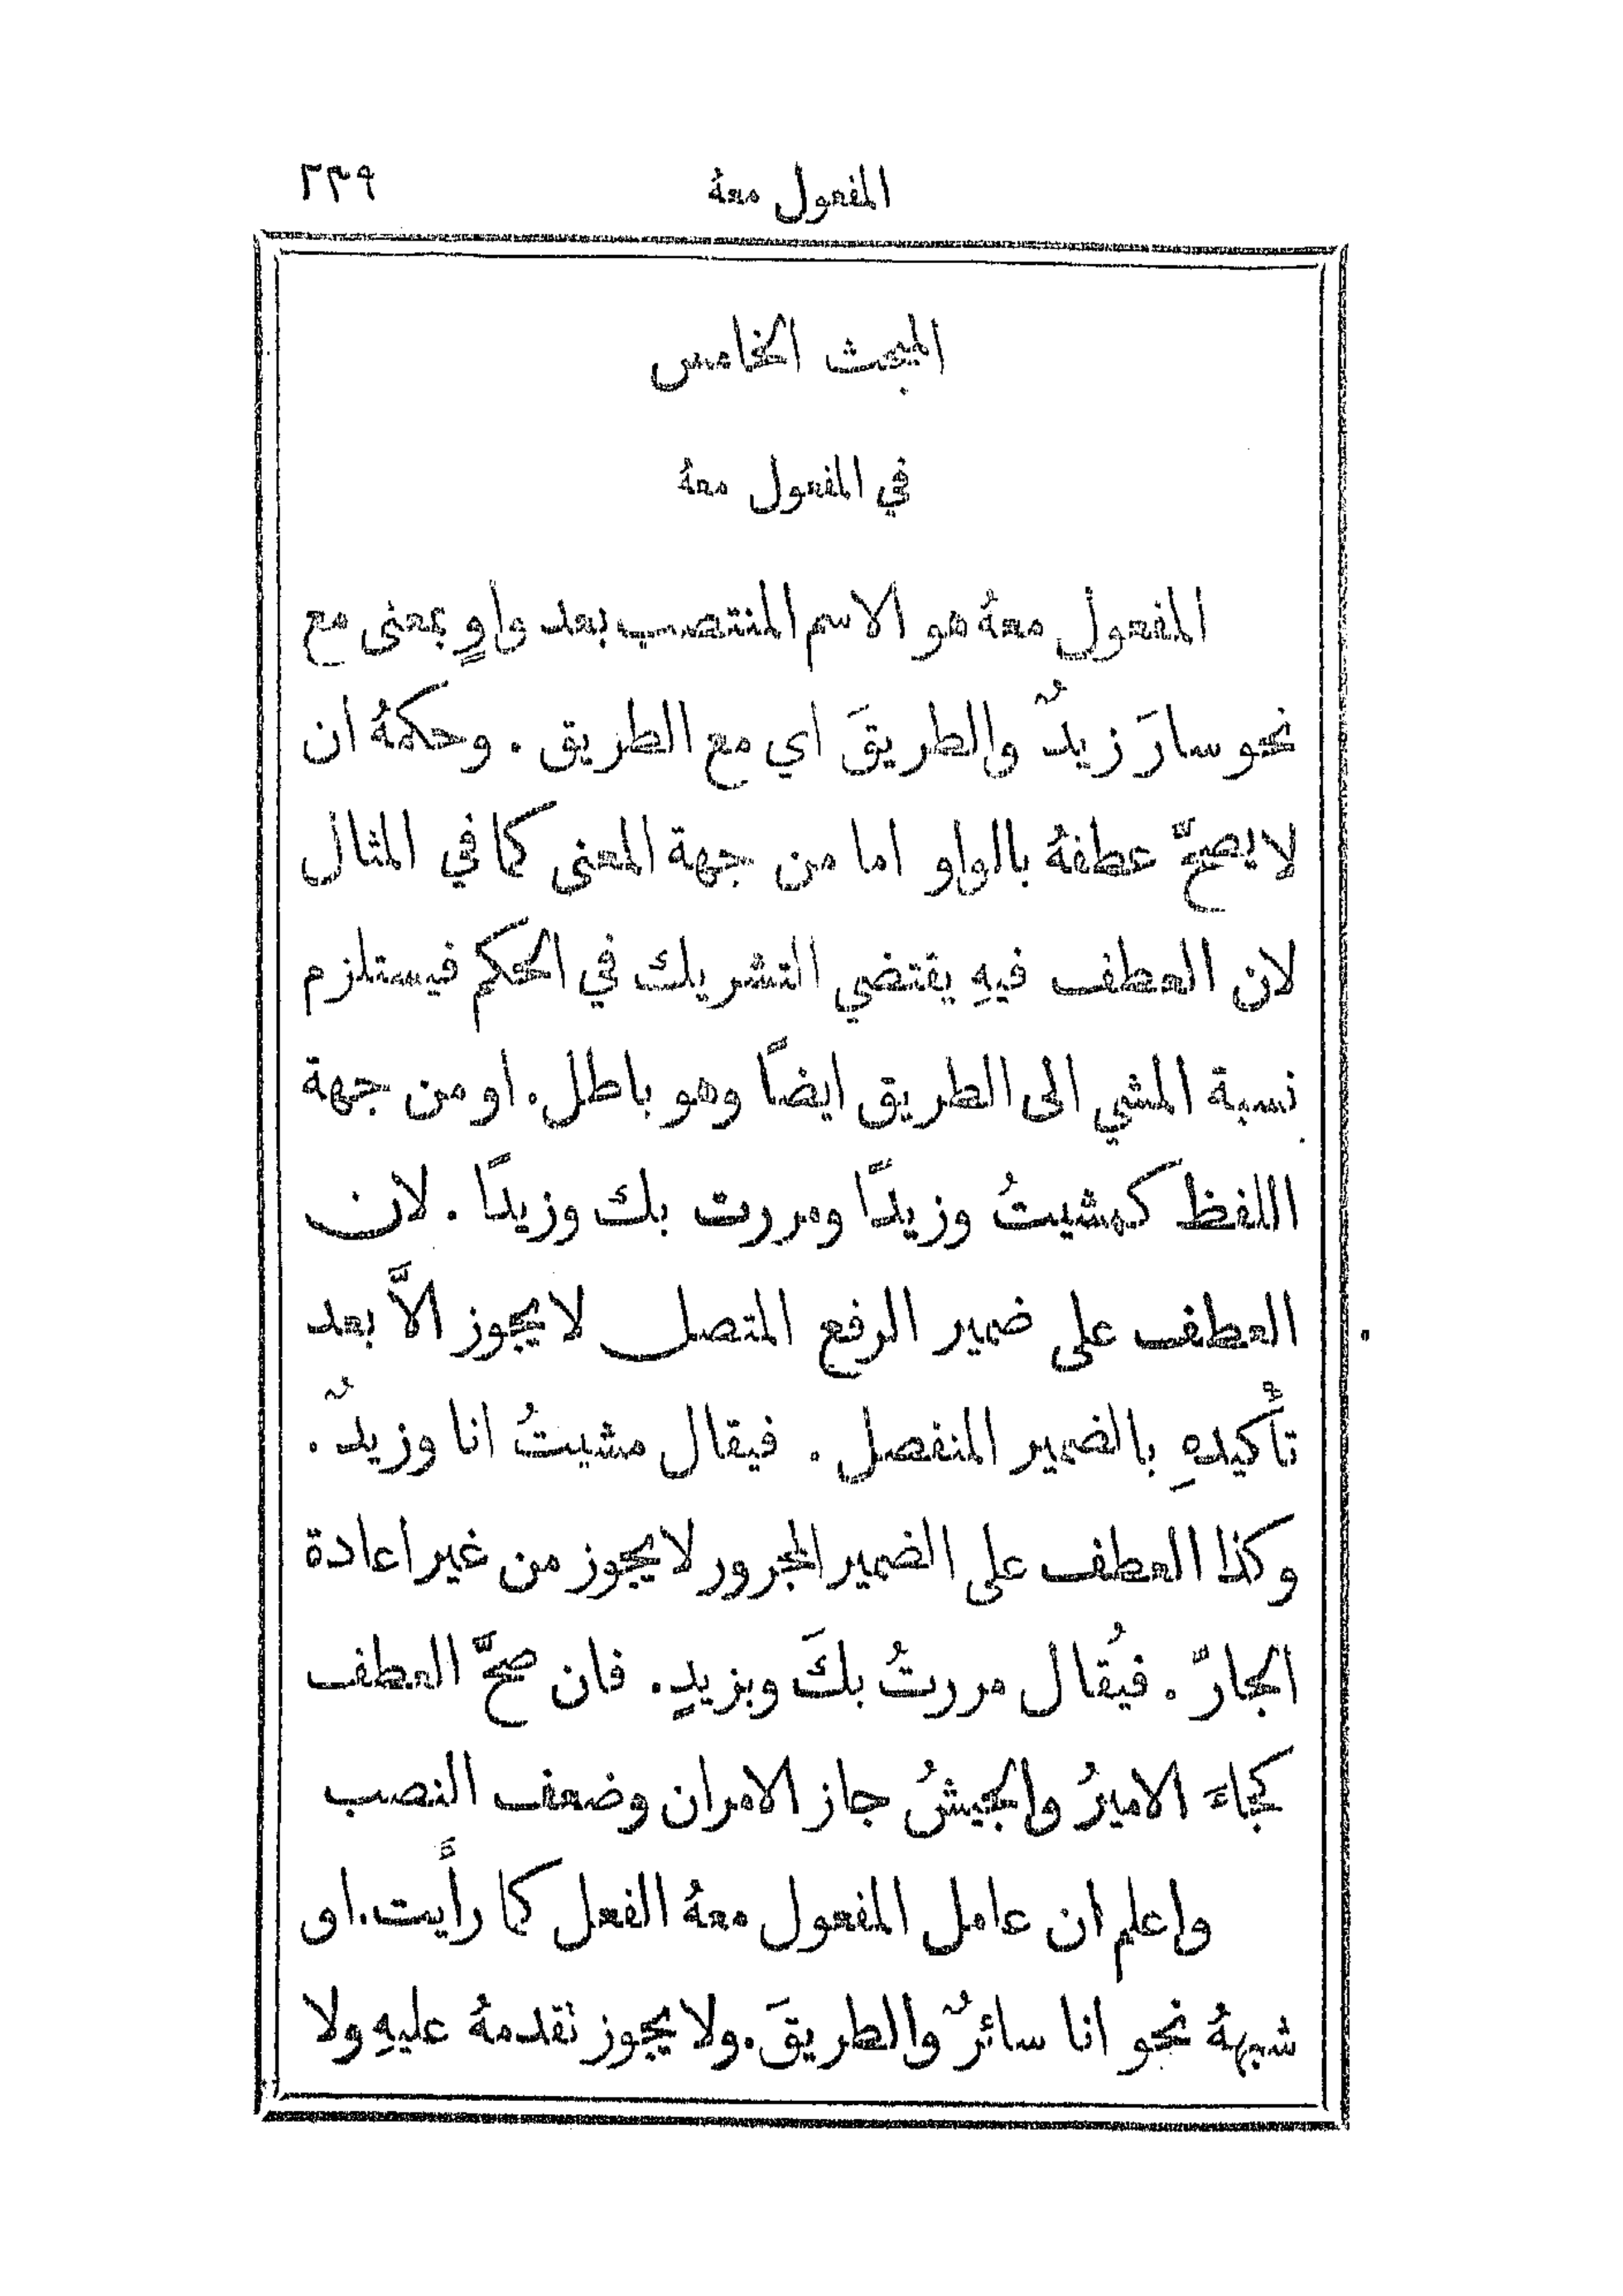 المفعول معهُ ٢٣٩
المبحث الخامس
في المفعول معهُ
المفعول معهُ هو الاسم المنتصب بعد واوٍ بمعنى مع
نحو سارَ زيدٌ والطريقَ اي مع الطريق . وحكمهُ ان
لا يصحّ عطفهُ بالواو اما من جهة المعنى كما في المثال
لان العطف فيهِ يقتضي التشريك في الحكم فيستلزم
نسبة المشي الى الطريق ايضًا وهو باطل . او من جهة
اللفظ كمشيتُ وزيدًا ومررت بك وزيدًا . لان
العطف على ضمير الرفع المتصل لا يجوز الاَّ بعد
تأكيدهِ بالضمير المنفصل . فيقال مشيتُ انا وزيدٌ .
وكذا العطف على الضمير المجرور لا يجوز من غير اعادة
الجارّ . فيُقال مررتُ بكَ وبزيدٍ . فان صحَّ العطف
كجاءَ الاميرُ والجيشُ جاز الامران وضعف النصب
واعلم ان عامل المفعول معهُ الفعل كما رأَيت . او
شبههُ نحو انا سائرٌ والطريقَ . ولا يجوز تقدمهُ عليهِ ولا